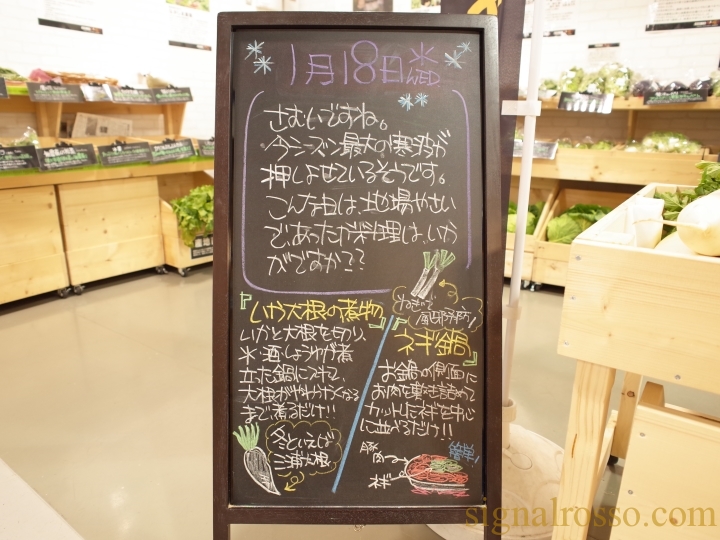 1月18日水
WED
さむいですね。
今シーズン最大の寒波が
押しよせているそうです。
こんな日は、地場やさい
で、あったか料理は、いか
がですか??
『いか大根の煮物』
いかと大根を切り、
水・酒・しょうゆが煮
立た鍋に入れて、
大根がやわかくなる
まで煮るだけ!!
冬といえば
三浦大根
ねぎで
風邪予防!!
『ネギ鍋』
お鍋の側面に
お肉を敷き詰めて
カットしたネギを中心
に並べるだけ!!
簡単!
豚肉
ネギ
signalrosso.com